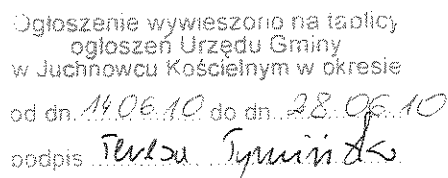 Ogłoszenie wywieszono na tablicy
ogłoszeń Urzędu Gminy
w Juchnowcu Kościelnym w okresie
od dn. 14.06.10 do dn. 28.06.10
podpis Teresa Tymińska